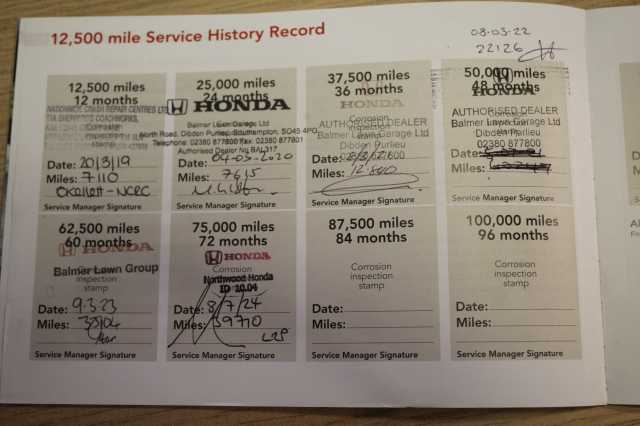 12,500 mile Service History Record
08-03-22
22126
12,500 miles
12 months
NATIONWIDE CRASH REPAIR CENTRES LTD
T/A SHERWOOD COACHWORKS
Corrosion
inspection
stamp
Date: 20/3/19
Miles: 7110
NCRC
Service Manager Signature
25,000 miles
24 months
HONDA
Balmer Lawn Garage Ltd
North Road, Dibden Purlieu, Southampton, SO45 4PG
Telephone: 02380 877800 Fax: 02380 877801
Authorised Dealer No BAL317
Date: 04-03-2020
Miles: 7615
Service Manager Signature
37,500 miles
36 months
HONDA
Corrosion
AUTHORISED DEALER
Balmer Lawn Garage Ltd
Dibden Purlieu
Date:
Miles: 12.800
Service Manager Signature
50,000 miles
48 months
HONDA
Corrosion
AUTHORISED DEALER
Balmer Lawn Garage Ltd
Dibden Purlieu
02380 877801
Date:
Miles:
Service Manager Signature
62,500 miles
60 months
HONDA
Corrosion
Balmer Lawn Group
inspection
stamp
Date: 9.3.23
Miles:
Service Manager Signature
75,000 miles
72 months
HONDA
Corrosion
Northwood Honda
ID 10.04
Date: 8/7/24
Miles: 39710
Service Manager Signature
87,500 miles
84 months
Corrosion
inspection
stamp
Date:
Miles:
Service Manager Signature
100,000 miles
96 months
Corrosion
inspection
stamp
Date:
Miles:
Service Manager Signature